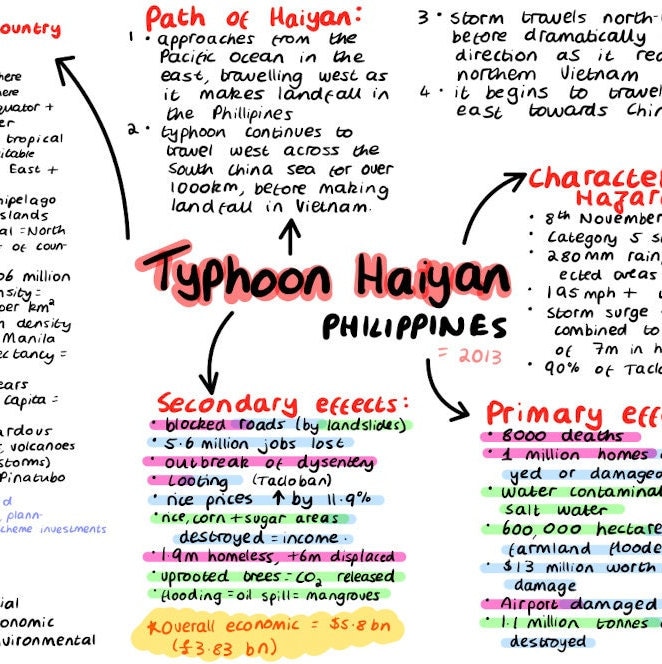 country
Path of Haiyan:
1 • approaches from the
Pacific ocean in the
east, travelling west as
it makes landfall in
the Phillipines
2 • typhoon continues to
travel west across the
South China sea for over
1000km, before making
landfall in Vietnam.
3 • storm travels north-
before dramatically
direction as it
northern Vietnam
4 • it begins to travel
east towards
Typhoon Haiyan
PHILIPPINES
= 2013
Hazar
• 8th November
• Category 5
• 280mm
areas
• 195mph +
• storm surge
combined to
of 7m in
• 90% of
tropical
East +
= North
of
million
=
per km²
density
Manila
=
capita =
volcanoes
Pinatubo
scheme investments
Secondary effects:
• blocked roads (by landslides)
• 5.6 million jobs lost
• outbreak of dysentery
• Looting (Tacloban)
• rice prices ↑ by 11.9%
• rice, corn + sugar areas
destroyed = income.
• 1.9m homeless, +6m displaced
• uprooted trees = CO₂ released
• flooding = oil spill = mangroves
*Overall economic = $5.8 bn
(£3.83 bn)
Primary
• 8000 deaths
• 1 million homes
or damaged
• water
salt water
• 600,000
farmland
• $13 million worth
damage
• Airport damaged
• 1.1 million tonnes
destroyed